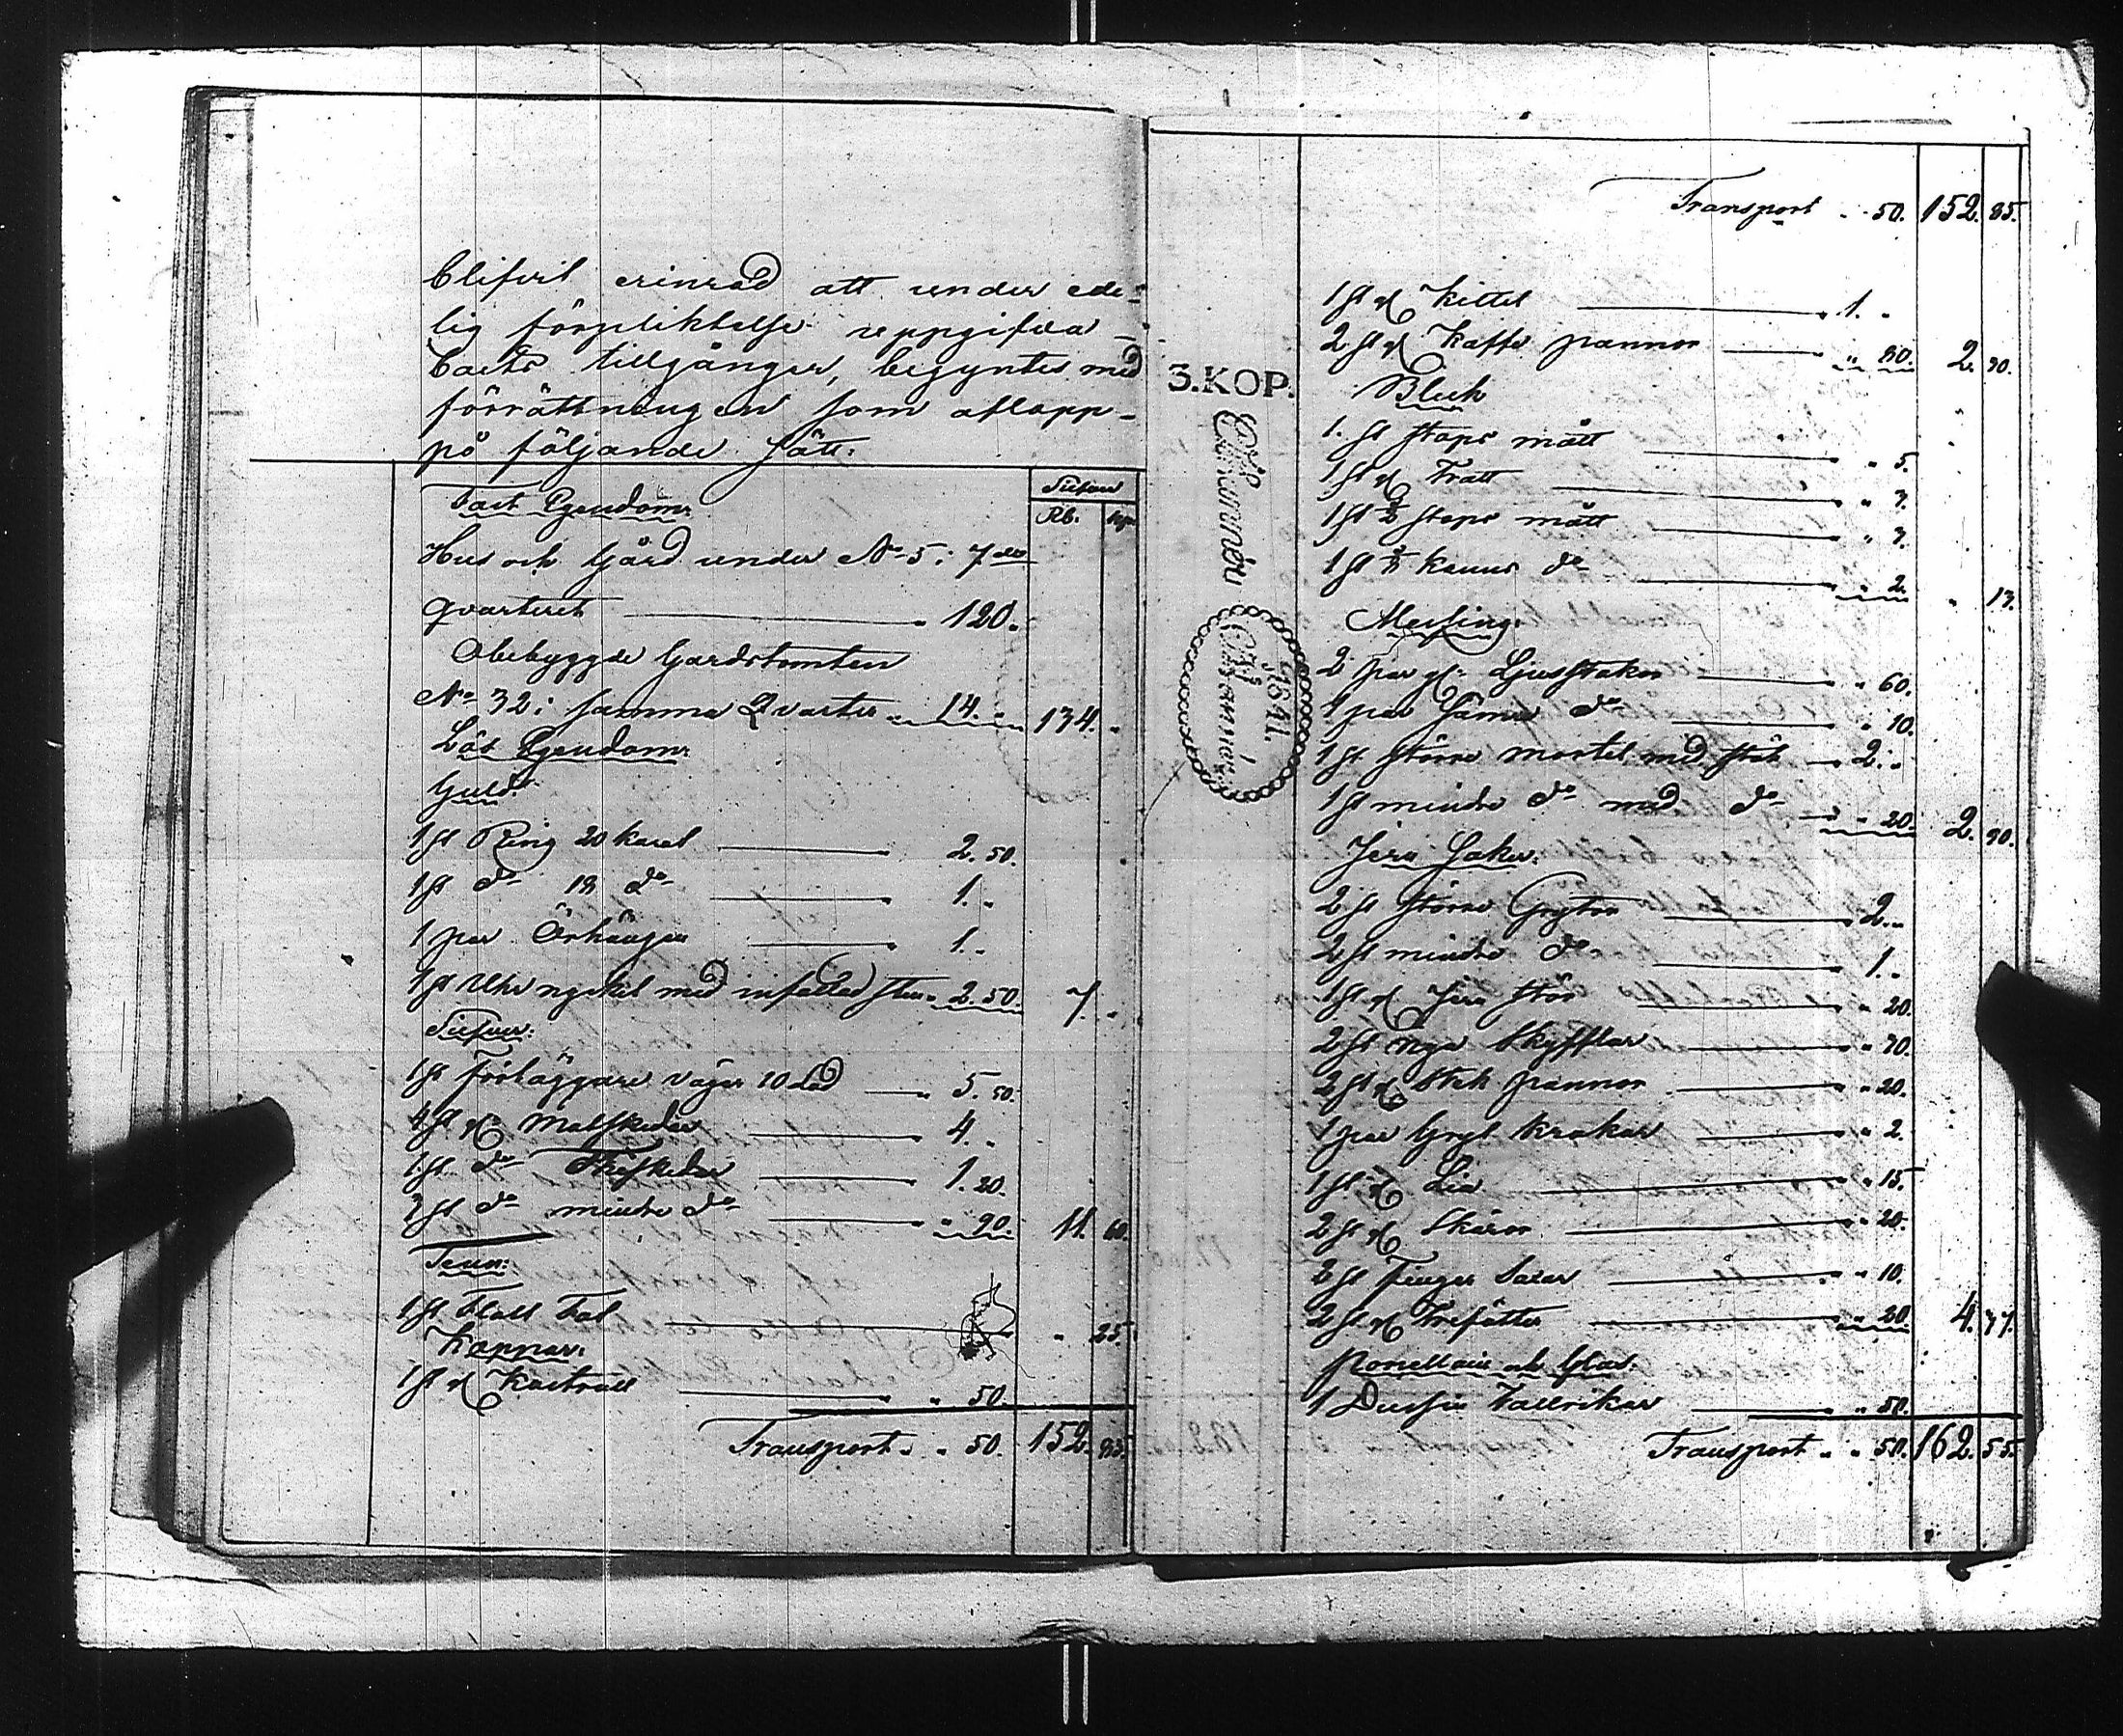 blifvit erinrad att under ede-
lig förpliktelse uppgifva
boets tillgångar, begyntes med
förrättningen som aflopp-
på följande sätt:
Silfver
Rb. kop.
Fast Egendom
Hus och Gård under No 5 i 7de
qvarteret 120.
Obebyggde Gårdstomten
No 32 i samma Qvarter 14. 134.
Lös Egendom
Guld:
1 st Ring 20 karat 2. 50.
1 st do 18 do 1.
1 par Örhängen 1.
1 st Uhrnyckel med infattad sten 2. 50. 7.
Silfver:
1 st Förläggare väger 10 Lod 5. 50.
4 st gl Matskedar 4.
1 st do Theskedar 1. 20.
3 st do mindre do 90. 11. 60.
Tenn:
1 st Flatt Fat 25.
Koppar:
1 st gl Kastrull 50.
Transport 50. 152. 85.
Transport 50. 152. 85.
3.KOP.
1841.
1 st gl Kittel 1.
2 st gl Kaffe pannor 80. 2. 30.
Bleck
1. st stops mått 5.
1 st gl Tratt 3.
1 st 1/2 stops mått 3.
1 st kanns do 2. 13.
Messing:
2 par gl Ljusstakar 60.
1 par sämre do 10.
1 st större mortel med stöt 2.
1 st mindre do med do 20. 2. 90.
Jern Saker:
2 st större Grytor 2.
2 st mindre do 1.
1 st gl Jern stör 20.
2 st nya Skyfflar 70.
2 st gl Stek pannor 20.
1 par Gryt krokar 2.
1 st gl Lia 15.
2 st gl Skäror 20.
2 st Finger Saxar 10.
2 st gl Trefötter 20. 4. 77.
Porcellain och Glas:
1 Dussin Tallrikar 50.
Transport 50. 162. 55.